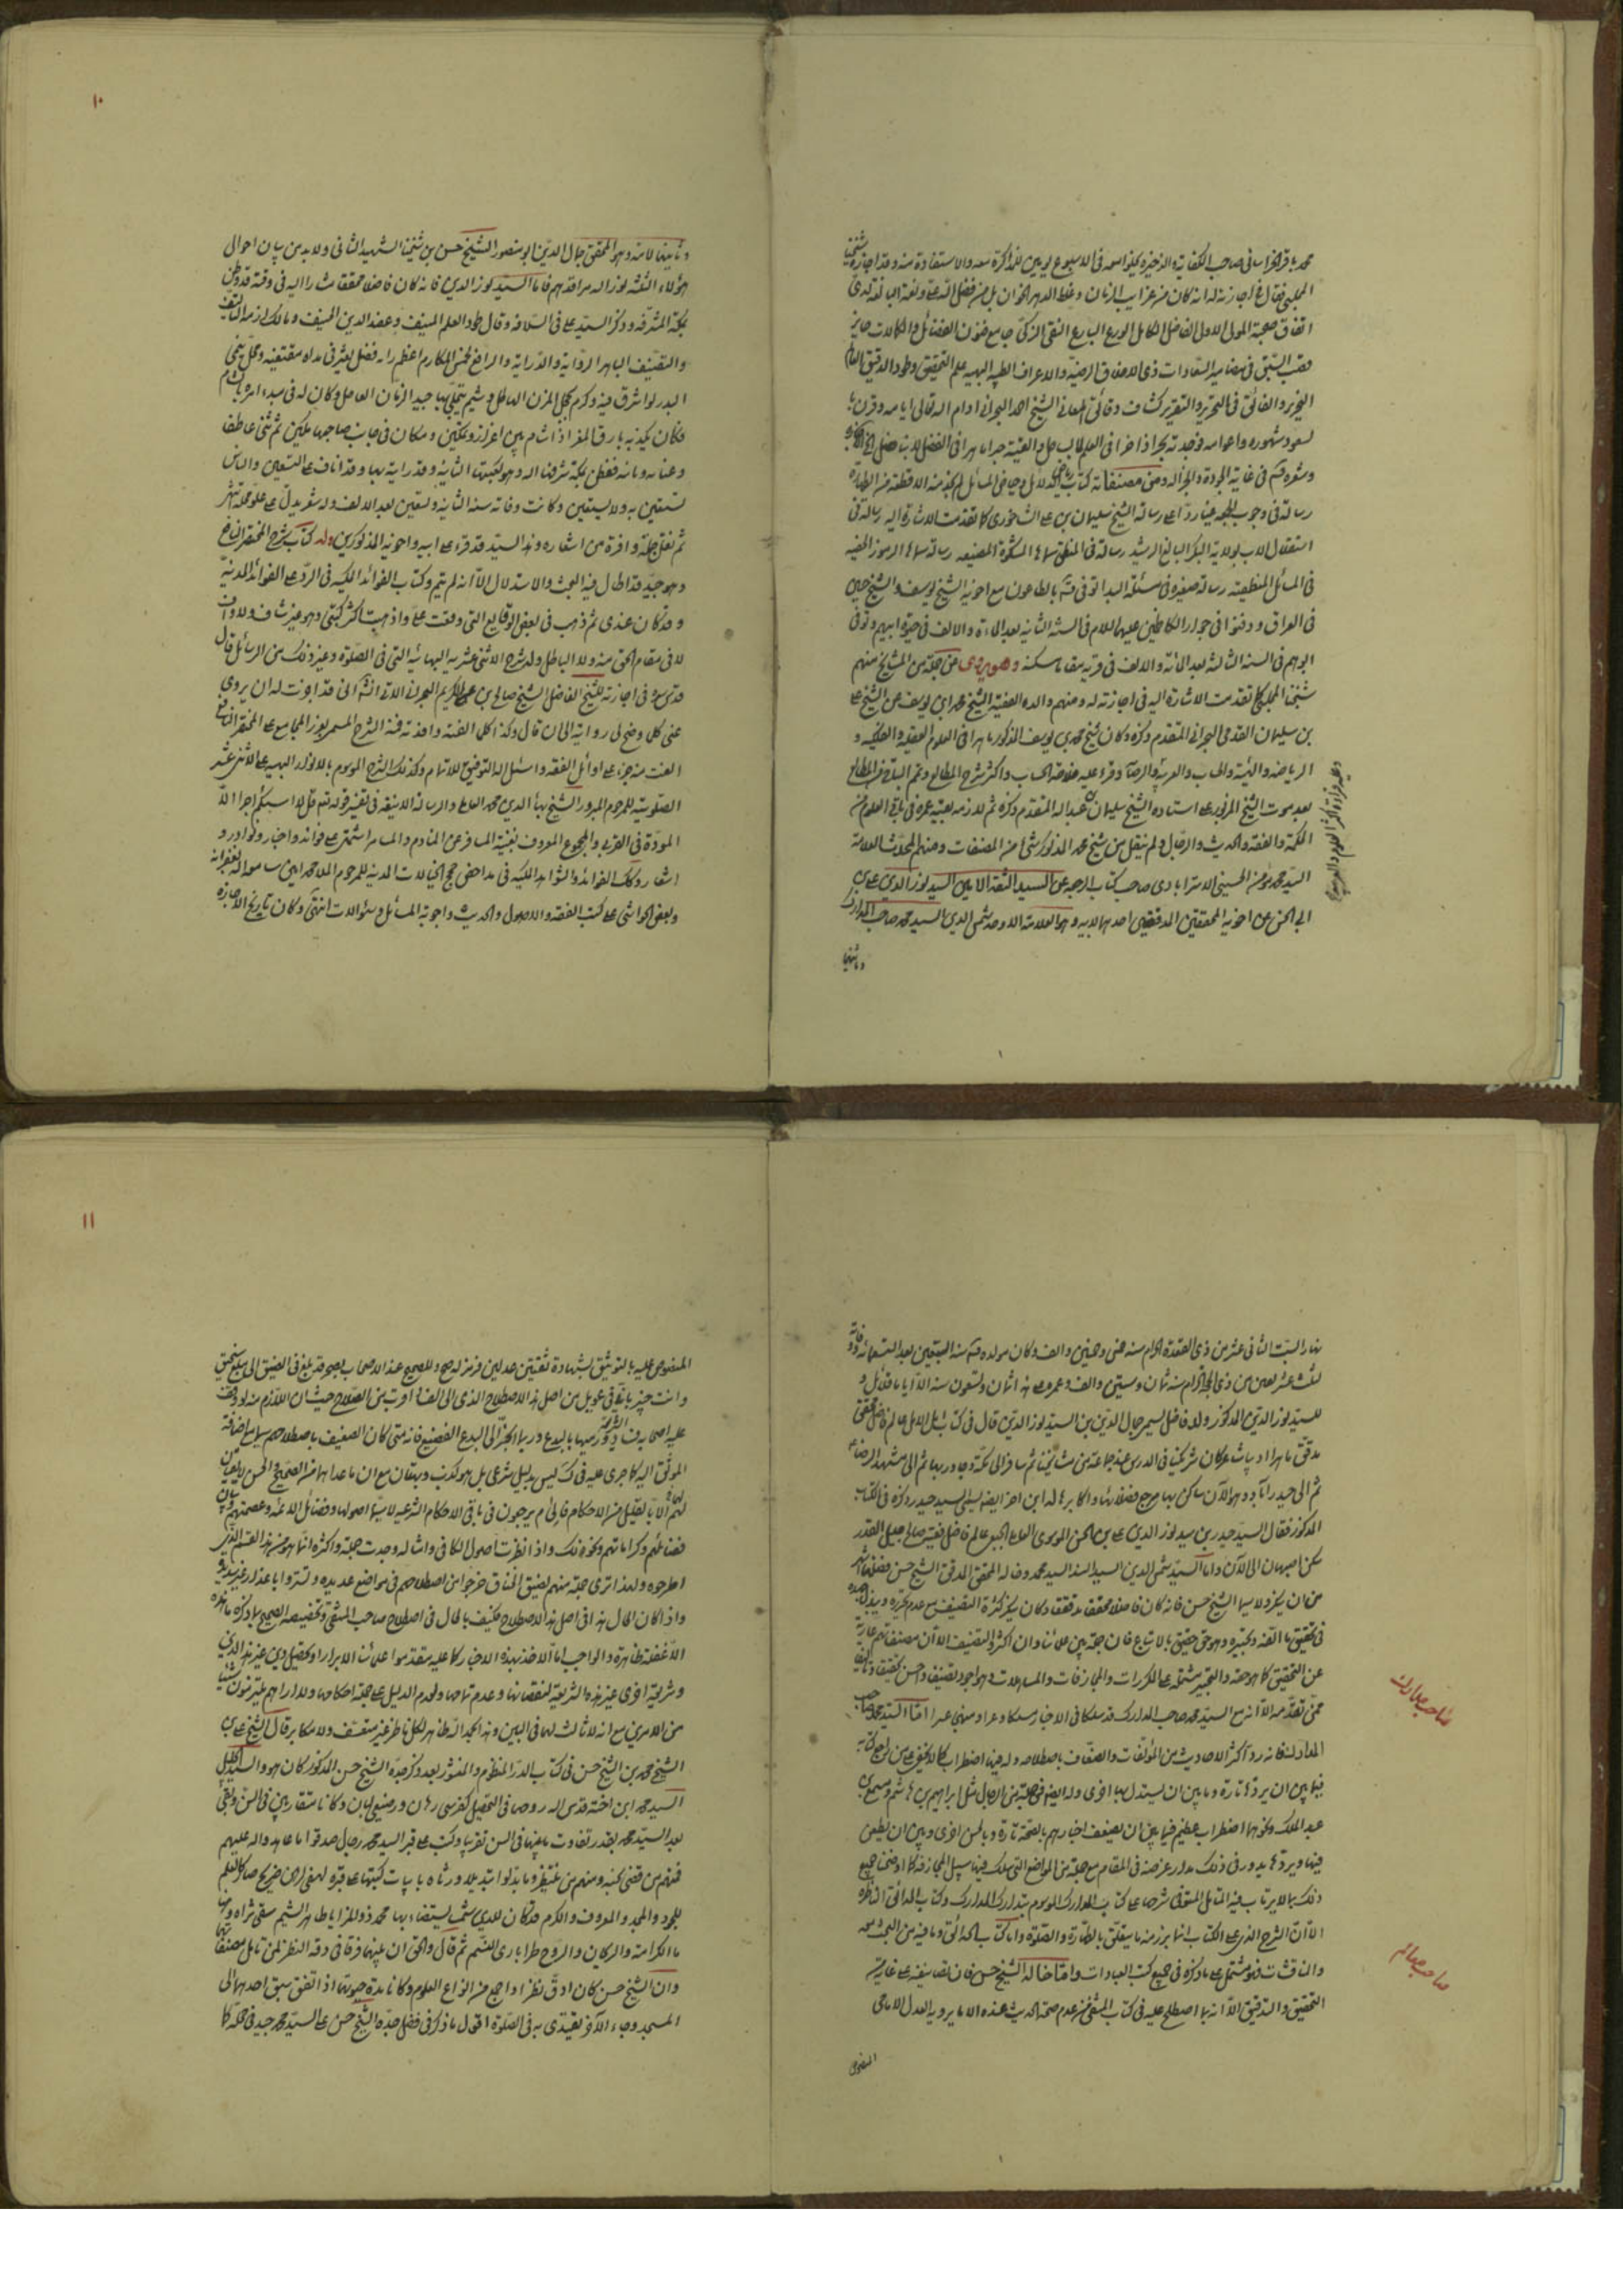 محمد باقر الخراساني صاحب الكفاية والذخيرة يخلو معه في الاسبوع يومين للمذاكرة معه والاستفادة منه وقد اجازه شيخنا
المجلسي فقال في اجازته له انه كان من غرايب الزمان وغلط الدهر الخوان بل من فضل الله علي ونعمه البالغة لدي
اتفاق صحبة المولى الاولى الفاضل الكامل الورع البارع التقي الزكي جامع فنون الفضائل والكمالات حايز
قصب السبق في مضامير السعادات ذي الاخلاق الرضية والاعراق الطيبة البهية علم التحقيق وطود التدقيق العالم
النحرير والفائق في التحرير والتقرير كشاف دقائق المعاني الشيخ احمد البحراني ادام الله تعالى ايامه وقرن با
لسعود شهوره واعوامه فوجدته بحرا زاخرا في العلم لا يساحل والفيته حبرا ماهرا في الفضل لا يناضل الخ
وشعره في غاية الجودة والجزالة ومن مصنفاته كتاب رياض الدلائل وحياض المسائل لم يوجد منه الا قطعة من الطهارة
رسالة في وجوب الجمعة عينا رد على رسالة الشيخ سليمان بن علي الشاخوري كما تقدمت الاشارة اليه رسالة في
استقلال الاب بولاية البكر البالغ الرشيد رسالة في المنطق سماها المشكوة المضيئة رسالة سماها الرموز الخفية
في المسائل المنطقية رسالة صغيرة في مسئلة البدا توفي بالطاعون مع اخويه الشيخ يوسف والشيخ حسين
في العراق ودفنوا في جوار الكاظمين عليهما السلام في السنة الثانية بعد المائة والالف في حيوة ابيهم وتوفي
ابوهم في السنة الثالثة بعد المائة والالف في قرية مقابا مسكنه وهو يروي عن جملة من المشايخ منهم
شيخنا المجلسي كما تقدمت الاشارة اليه في اجازته له ومنهم والده الفقيه الشيخ محمد بن يوسف عن الشيخ علي
بن سليمان القدمي البحراني المتقدم ذكره وكان شيخ محمد بن يوسف المذكور ماهرا في العلوم العقلية والفلكية و
الرياضية والهيئة والحساب والعربية وقرء عليه خلاصة الحساب واكثر شرح المطالع
بعد موت الشيخ المزبور على استاده الشيخ سليمان بن عبد الله المتقدم ذكره ثم لازمه بقية عمره في باقي العلوم من
الحكمة والفقه والحديث والرجال ولم ينقل من شيخ محمد المذكور شيئا من المصنفات ومنهم المحدث العلامة
السيد محمد مؤمن الحسيني الاسترابادي صاحب كتاب الرجعة عن السيد الثقة الامين السيد نور الدين علي بن
ابي الحسن عن اخويه المحققين المدققين احدهما لابيه وهو العلامة الاوحد شمس الدين السيد محمد صاحب المدارك
وثانيهما
١٠
وثانيهما لامه وهو المحقق جمال الدين ابو منصور الشيخ حسن بن شيخنا الشهيد الثاني ولا بد من بيان احوال
هؤلاء الثلثة نور الله مراقدهم فاما السيد نور الدين فانه كان فاضلا محققا مشارا اليه في وقته قد وطن
بمكة المشرفة وذكر السيد علي في السلافة وقال طود العلم المنيف وعضد الدين الحنيف ومالك ازمة التأليف
والتصنيف الباهر الرواية والدراية والرافع لخميس المكارم اعظم راية فضل يعثر في مداه مقتفيه ومحل يتمنى
البدر لو اشرق فيه وكرم يخجل المزن الهاطل وشيم يتحلى بها جيد الزمان العاطل وكان له في مبدء امره بالشام
مكان لا يكذبه بارق العز اذا شام بين اعزاز وتمكين ومكان في جانب صاحبها مكين ثم ثنى عاطفا
وعنانه وثانيه فقطن بمكة شرفها الله وهو كعبتها الثانية وقد رايته بها وقد اناف على التسعين والناس
تستعين به ولا يستعين وكانت وفاته سنة الثانية وستين بعد الالف وله شعر يدل على علو محله
ثم نقل جملة وافرة من اشعاره وهذا السيد قد قرء على ابيه واخويه المذكورين وله كتاب شرح المختصر النافع
وهو جيد قد اطال فيه البحث والاستدلال الا انه لم يتم وكتاب الفوائد المكية في الرد على الفوائد المدنية
وقد كان عندي ثم ذهب في بعض الوقايع التي وقعت علي واذهبت اكثر كتبي وهو غير شاف ولا واف
لا في مقام الحق منه ولا الباطل وله شرح الاثني عشرية البهائية التي في الصلوة وغير ذلك من الرسائل قال
قدس سره في اجازته للشيخ الفاضل الشيخ صالح بن عبد الكريم البحراني الآتي انشاء الله قد اجزت له ان يروي
عني كلما وضح لي روايته الى ان قال وكذا كل الفته وافدته فمنه الشرح المسمى بغرر المجامع على المختصر النافع
الفت منه جزء على اوائل الفقه واسئل الله التوفيق للاتمام وكذلك الشرح الموسوم بالانوار البهية على الاثني عشرية
الصلوتية للمرحوم المبرور الشيخ بهاء الدين محمد العاملي والرسالة الانيقة في تفسير قوله تعالى قل لا اسئلكم عليه اجرا الا
المودة في القربى والمجموع المعروف بغنية المسافر عن المنادم والمسامر اشتمل على فوائد واخبار ونوادر و
اشعار وكذلك الفوائد والشواهد المكية في مداحض حجج الخيالات المدنية للمرحوم الملا محمد امين سامحه الله بغفرانه
وبعض الحواشي على كتب الفقه والاصول والحديث واجوبة المسائل وسئوالات انتهى وكان تاريخ الاجازة
نهار السبت الثاني عشر من ذي القعدة الحرام سنة خمس وخمسين والف وكان مولده سنة السبعين بعد التسعمائة ووفاته
لثلث عشر بقين من ذي الحجة الحرام سنة ثمان وستين والف وعمره على هذا ثمان وتسعون سنة الا اياما قلائل و
للسيد نور الدين المذكور ولد فاضل يسمى جمال الدين بن السيد نور الدين قال في كتاب امل الامل عالم فاضل محقق
مدقق ماهر اديب شاعر كان شريكنا في الدرس عند جماعة من مشايخنا ثم سافر الى مكة وجاور بها ثم الى مشهد الرضا
ثم الى حيدراباد وهو الآن ساكن بها مرجع فضلائها واكابرها وله ابن اخ ايضا يسمى السيد حيدر ذكره في الكتاب
المذكور فقال السيد حيدر بن سيد نور الدين علي بن ابي الحسن الموسوي العاملي الجبعي عالم فاضل فقيه صالح جليل القدر
سكن اصبهان الى الآن واما السيد شمس الدين السيد السند السيد محمد وخاله المحقق المدقق الشيخ حسن ففضلهما اشهر
من ان يذكر لا سيما الشيخ حسن فانه كان فاضلا محققا مدققا وكان ينكر كثرة التصنيف مع عدم تحريره ويبذل جهده
في تحقيق ما الفه وتحبيره وهو حق حقيق بالاتباع فان جملة من علمائنا وان اكثروا التصنيف الا ان مصنفاتهم عارية
عن التحقيق كما هو حقه والتحبير مشتملة على المكررات والمجازفات والمساهلات وهو اجود تصنيفا واحسن تحقيقا وتأليفا
ممن تقدمه الا انه مع السيد محمد صاحب المدارك قد سلكا في الاخبار مسلكا وعرا ونهجا منهجا عسرا اما السيد محمد صاحب
المدارك فانه رد اكثر الاحاديث من الموثقات والضعاف باصطلاحه وله فيها اضطراب كما لا يخفى على من راجع كتابه
فيما بين ان يردها تارة وما بين ان يستدل بها اخرى وله ايضا في جملة من الرجال مثل ابراهيم بن هاشم ومسمع بن
عبد الملك ونحوهما اضطراب عظيم فيما بين ان يصف اخبارهم بالصحة تارة وبالحسن اخرى وبين ان يطعن
فيها ويردها يدور في ذلك مدار غرضه في المقام مع جملة من المواضع التي سلك فيها سبيل المجازفة كما اوضحنا جميع
ذلك بما لا يرتاب فيه المتأمل المنصف في شرحنا على كتاب المدارك الموسوم بتدارك المدارك وكتاب الحدائق الناظرة
الا ان الشرح الذي على الكتاب انما برز منه ما يتعلق بالطهارة والصلوة واما كتاب الحدائق وما فيه من البحث معه
والمناقشات فهو مشتمل على ما ذكره في جميع كتب العبادات واما خاله الشيخ حسن فان تصانيفه على غاية من
التحقيق والتدقيق الا انه بما اصطلح عليه في كتاب المنتقى من عدم صحة الحديث عنده الا ما يرويه العدل الامامي
المنصوص
صاحب مدارك
صاحب معالم
١١
المنصوص عليه بالتوثيق بشهادة ثقتين عدلين فرمز له صح وللصحيح عند الاصحاب بصحر قد بلغ في الضيق الى مبلغ سحيق
وانت خبير بانا في عويل من اصل هذا الاصطلاح الذي هو الى الفساد اقرب من الصلاح حيث ان اللازم منه لو وقف
عليه اصحابه فساد الشريعة وربما انجر الى البدع الفضيع فانه متى كان الضعيف باصطلاحهم مع اضافة
الموثق اليه كما جرى عليه في ليس بدليل شرعي بل هو كذب وبهتان مع ان ما عداهما من الصحيح والحسن لا يفيان
لهم الا بالقليل من الاحكام فالى م يرجعون في باقي الاحكام الشرعية لا سيما اصولها وفضائل الائمة وعصمتهم وبيان
فضائلهم وكراماتهم ونحو ذلك واذا نظرت اصول الكافي وامثاله وجدت جله واكثره انما هو من هذا القسم الذي
اطرحوه ولهذا ترى جملة منهم لضيق الخناق خرجوا من اصطلاحهم في مواضع عديدة وتستروا باعذار غير سديدة
واذا كان الحال هذه في اصل هذا الاصطلاح فكيف بالحال في اصطلاح صاحب المنتقى وتخصيصه الصحيح بما ذكره ما هذه
الا غفلة ظاهرة والواجب اما الاخذ بهذه الاخبار كما عليه متقدموا علمائنا الابرار او تحصيل دين غير هذا الدين
وشريعة اخرى غير هذه الشريعة لنقصانها وعدم تمامها ولعدم الدليل على جملة احكامها ولا اراهم يلتزمون شيئا
من الامرين مع انه لا ثالث لهما في البين وهذا بحمد الله ظاهر لكل ناظر غير متعسف ولا مكابر قال الشيخ علي بن
الشيخ محمد بن الشيخ حسن في كتاب الدر المنظوم والمنثور بعد ذكر جده الشيخ حسن المذكور كان هو والسيد الجليل
السيد محمد ابن اخته قدس الله روحهما في التحصيل كفرسي رهان ورضيعي لبان وكانا متقاربين في السن وبقي
بعد السيد محمد بقدر تفاوت ما بينهما في السن تقريبا وكتب على قبر السيد محمد رجال صدقوا ما عاهدوا الله عليه
فمنهم من قضى نحبه ومنهم من ينتظر وما بدلوا تبديلا ورثاه بابيات كتبها على قبره لهفي لرهن ضريح صار كالعلم
للجود والمجد والمعروف والكرم قد كان للدين شمسا يستضاء بها محمد ذو المزايا طاهر الشيم سقى ثراه وهناه
بالكرامة والريحان والروح طرا باري النسم ثم قال والحق ان بينهما فرقا في دقة النظر لمن تامل مصنفاتهما
وان الشيخ حسن كان ادق نظرا واجمع من انواع العلوم وكانا مدة حيوتهما اذا اتفق سبق احدهما الى
المسجد وجاء الآخر يقتدي به في الصلوة اقول ما ذكر في فضل جده الشيخ حسن على السيد محمد جيد في محله كما